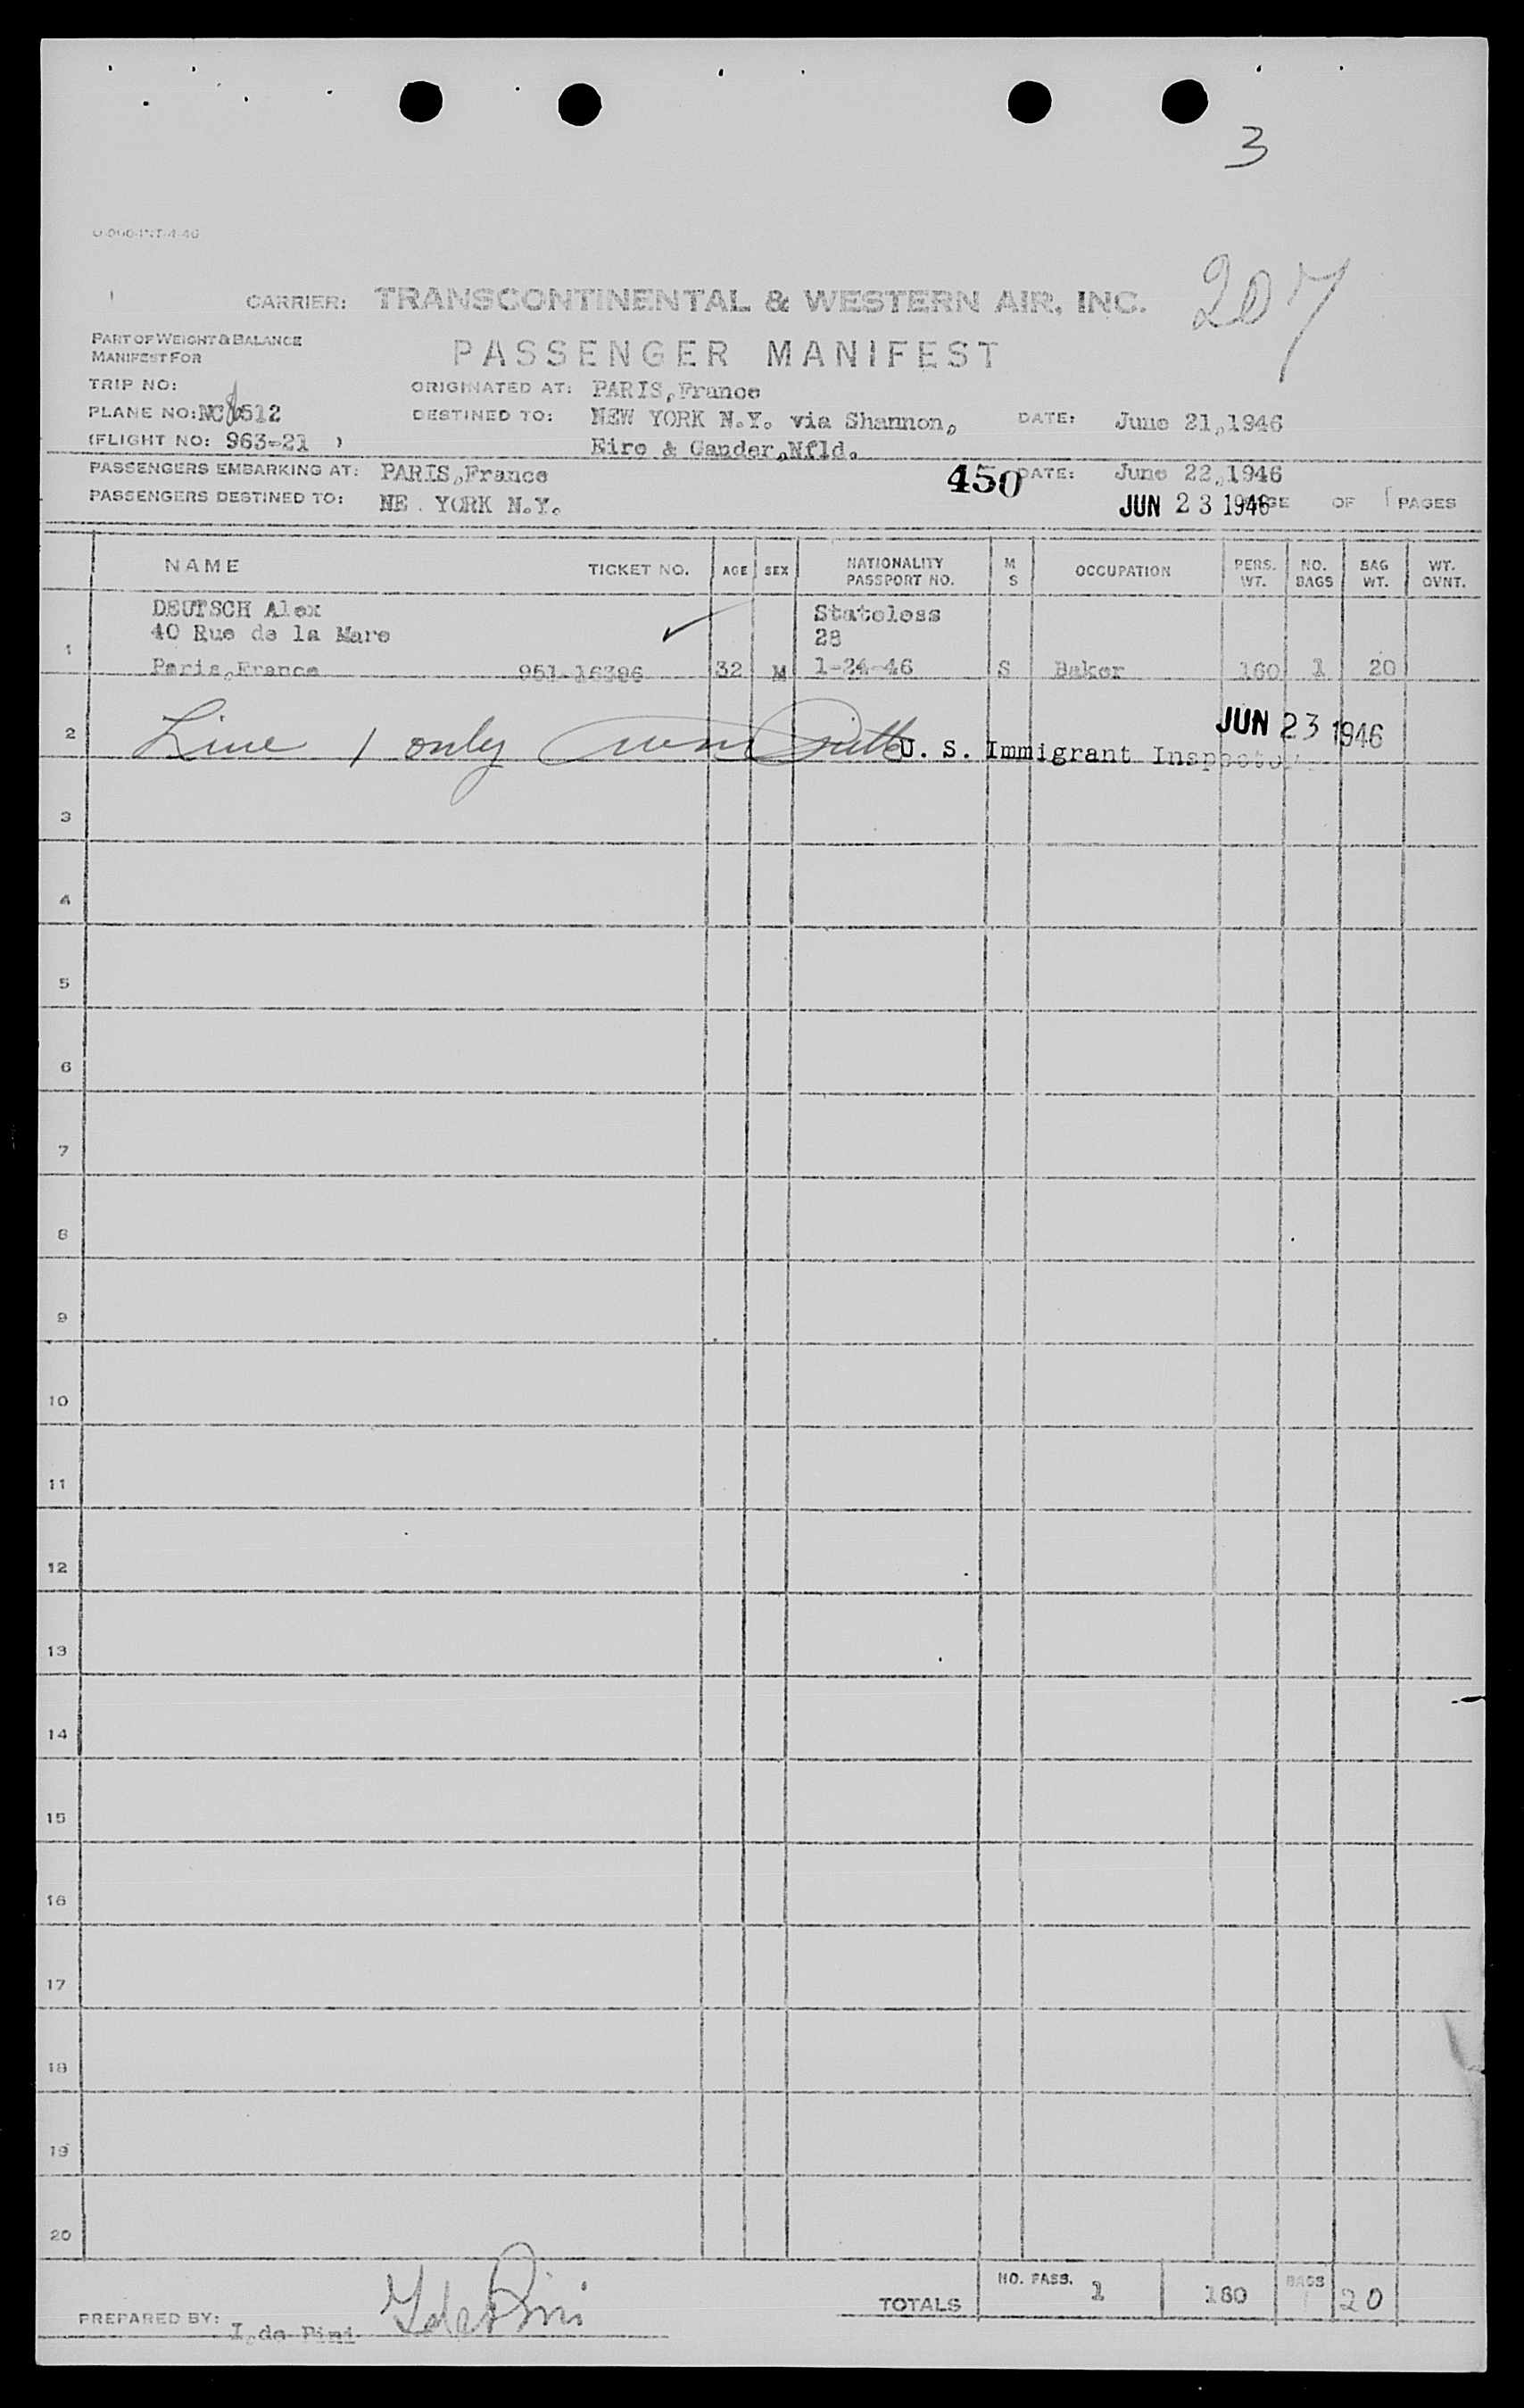 3
207
CARRIER: TRANSCONTINENTAL & WESTERN AIR, INC.
PART OF WEIGHT & BALANCE
MANIFEST FOR
PASSENGER MANIFEST
TRIP NO:
ORIGINATED AT: PARIS, France
PLANE NO: NC86512
DESTINED TO: NEW YORK N.Y. via Shannon,
DATE: June 21, 1946
(FLIGHT NO: 963-21 )
Eire & Gander, Nfld.
PASSENGERS EMBARKING AT: PARIS, France
450
DATE: June 22, 1946
PASSENGERS DESTINED TO: NE YORK N.Y.
JUN 23 1946
OF 1 PAGES
NAME TICKET NO. AGE SEX NATIONALITY PASSPORT NO. M S OCCUPATION PERS. WT. NO. BAGS BAG WT. WT. OVNT.
DEUTSCH Alex Stateless
40 Rue de la Mare 28
1 Paris, France 951-16396 32 M 1-24-46 S Baker 160 1 20
JUN 23 1946
2 Line 1 only U. S. Immigrant Inspector
3
4
5
6
7
8
9
10
11
12
13
14
15
16
17
18
19
20
TOTALS NO. PASS. 1 180 BAGS 1 20
PREPARED BY: I. de Pini